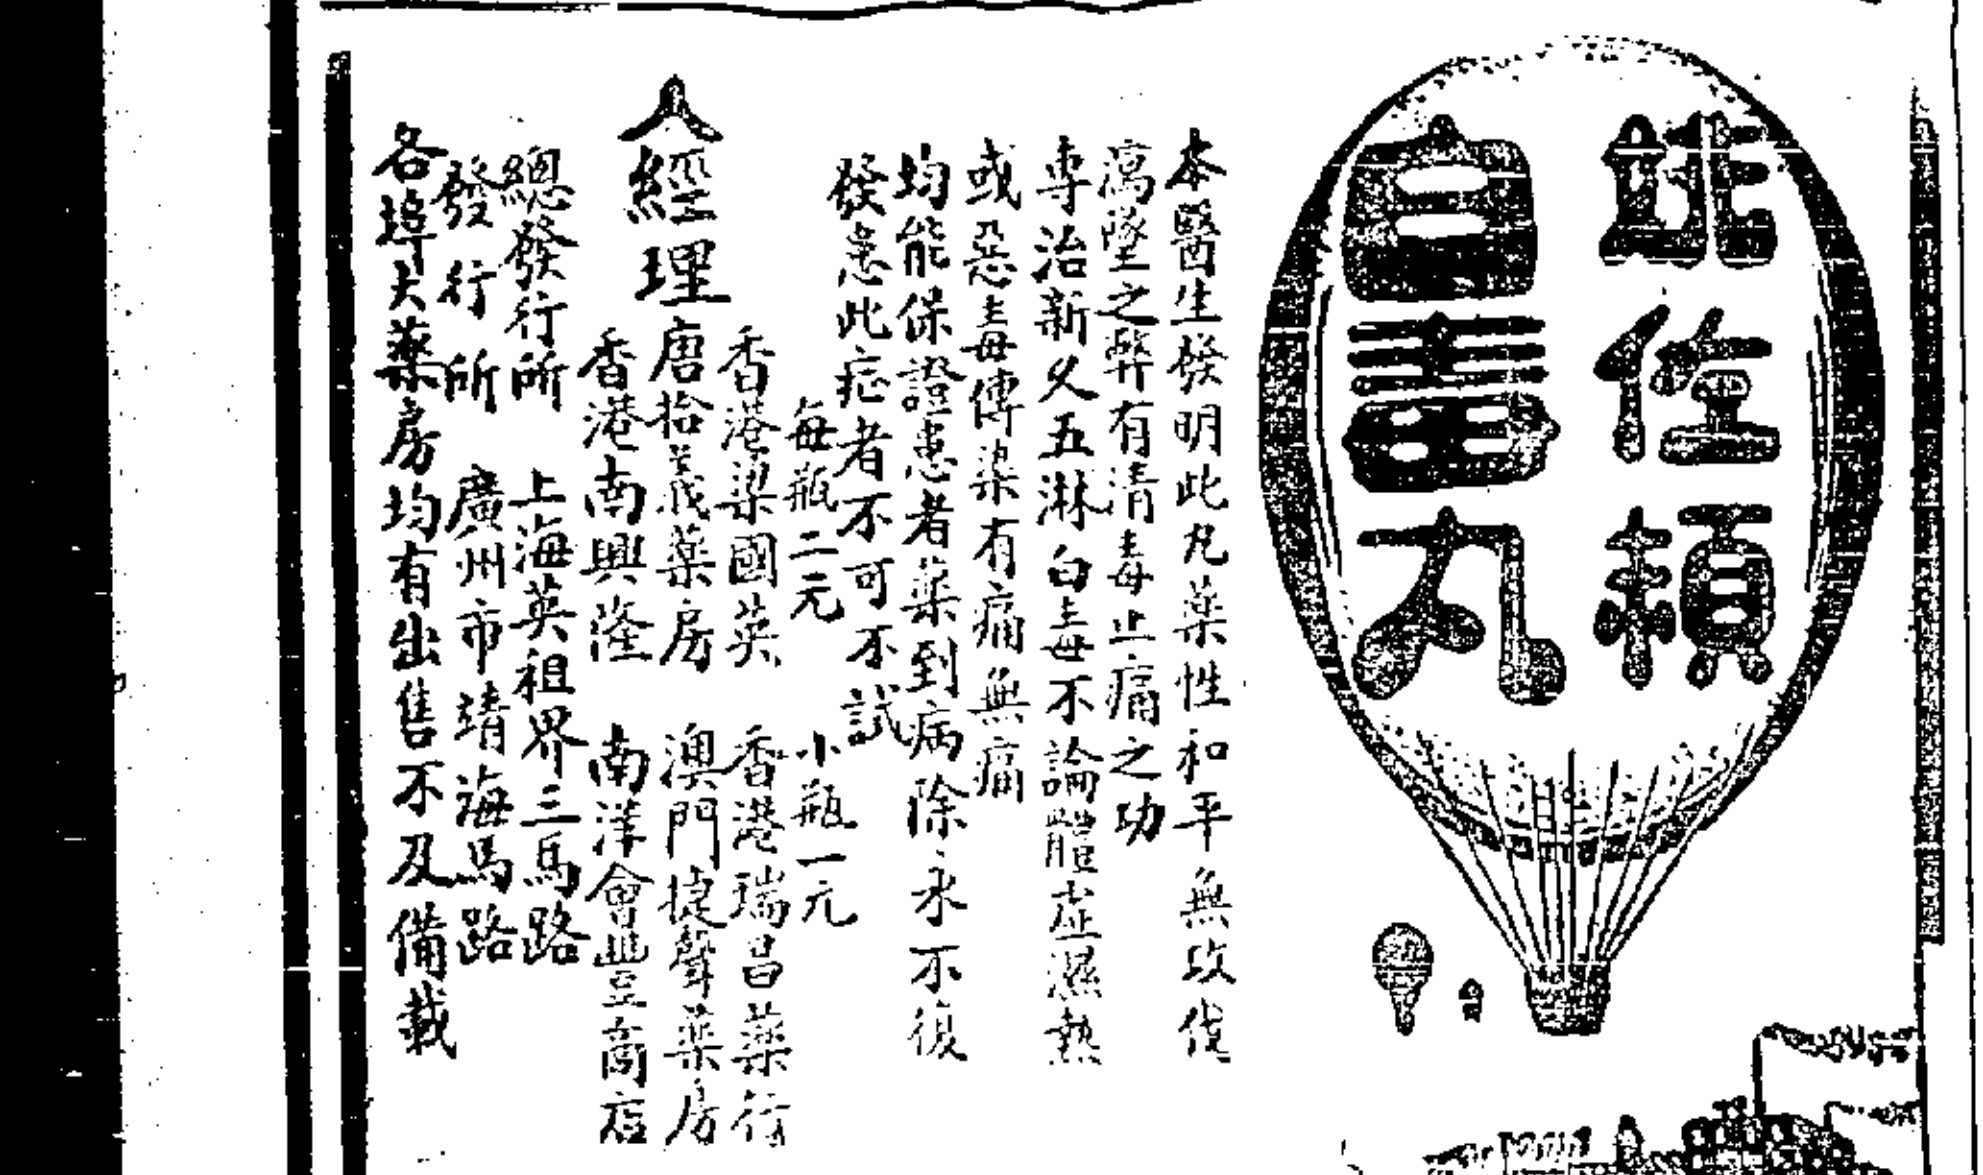 姚佐頓
白毒丸
本醫生發明此凡藥性和平無攻伐
瀉墜之弊有清毒止痛之功
專治新久五淋白毒不論體虛濕熱
或惡毒傳染有痛無痛
均能保證患者藥到病除永不復
發患此症者不可不試
每瓶二元　小瓶一元
香港梁國英　香港瑞昌藥行
人經理
唐拾義藥房　澳門捷聲藥房
香港南興隆　南洋會豐商店
總發行所　上海英租界三馬路
發行所　廣州市靖海馬路
各埠大藥房均有出售不及備載